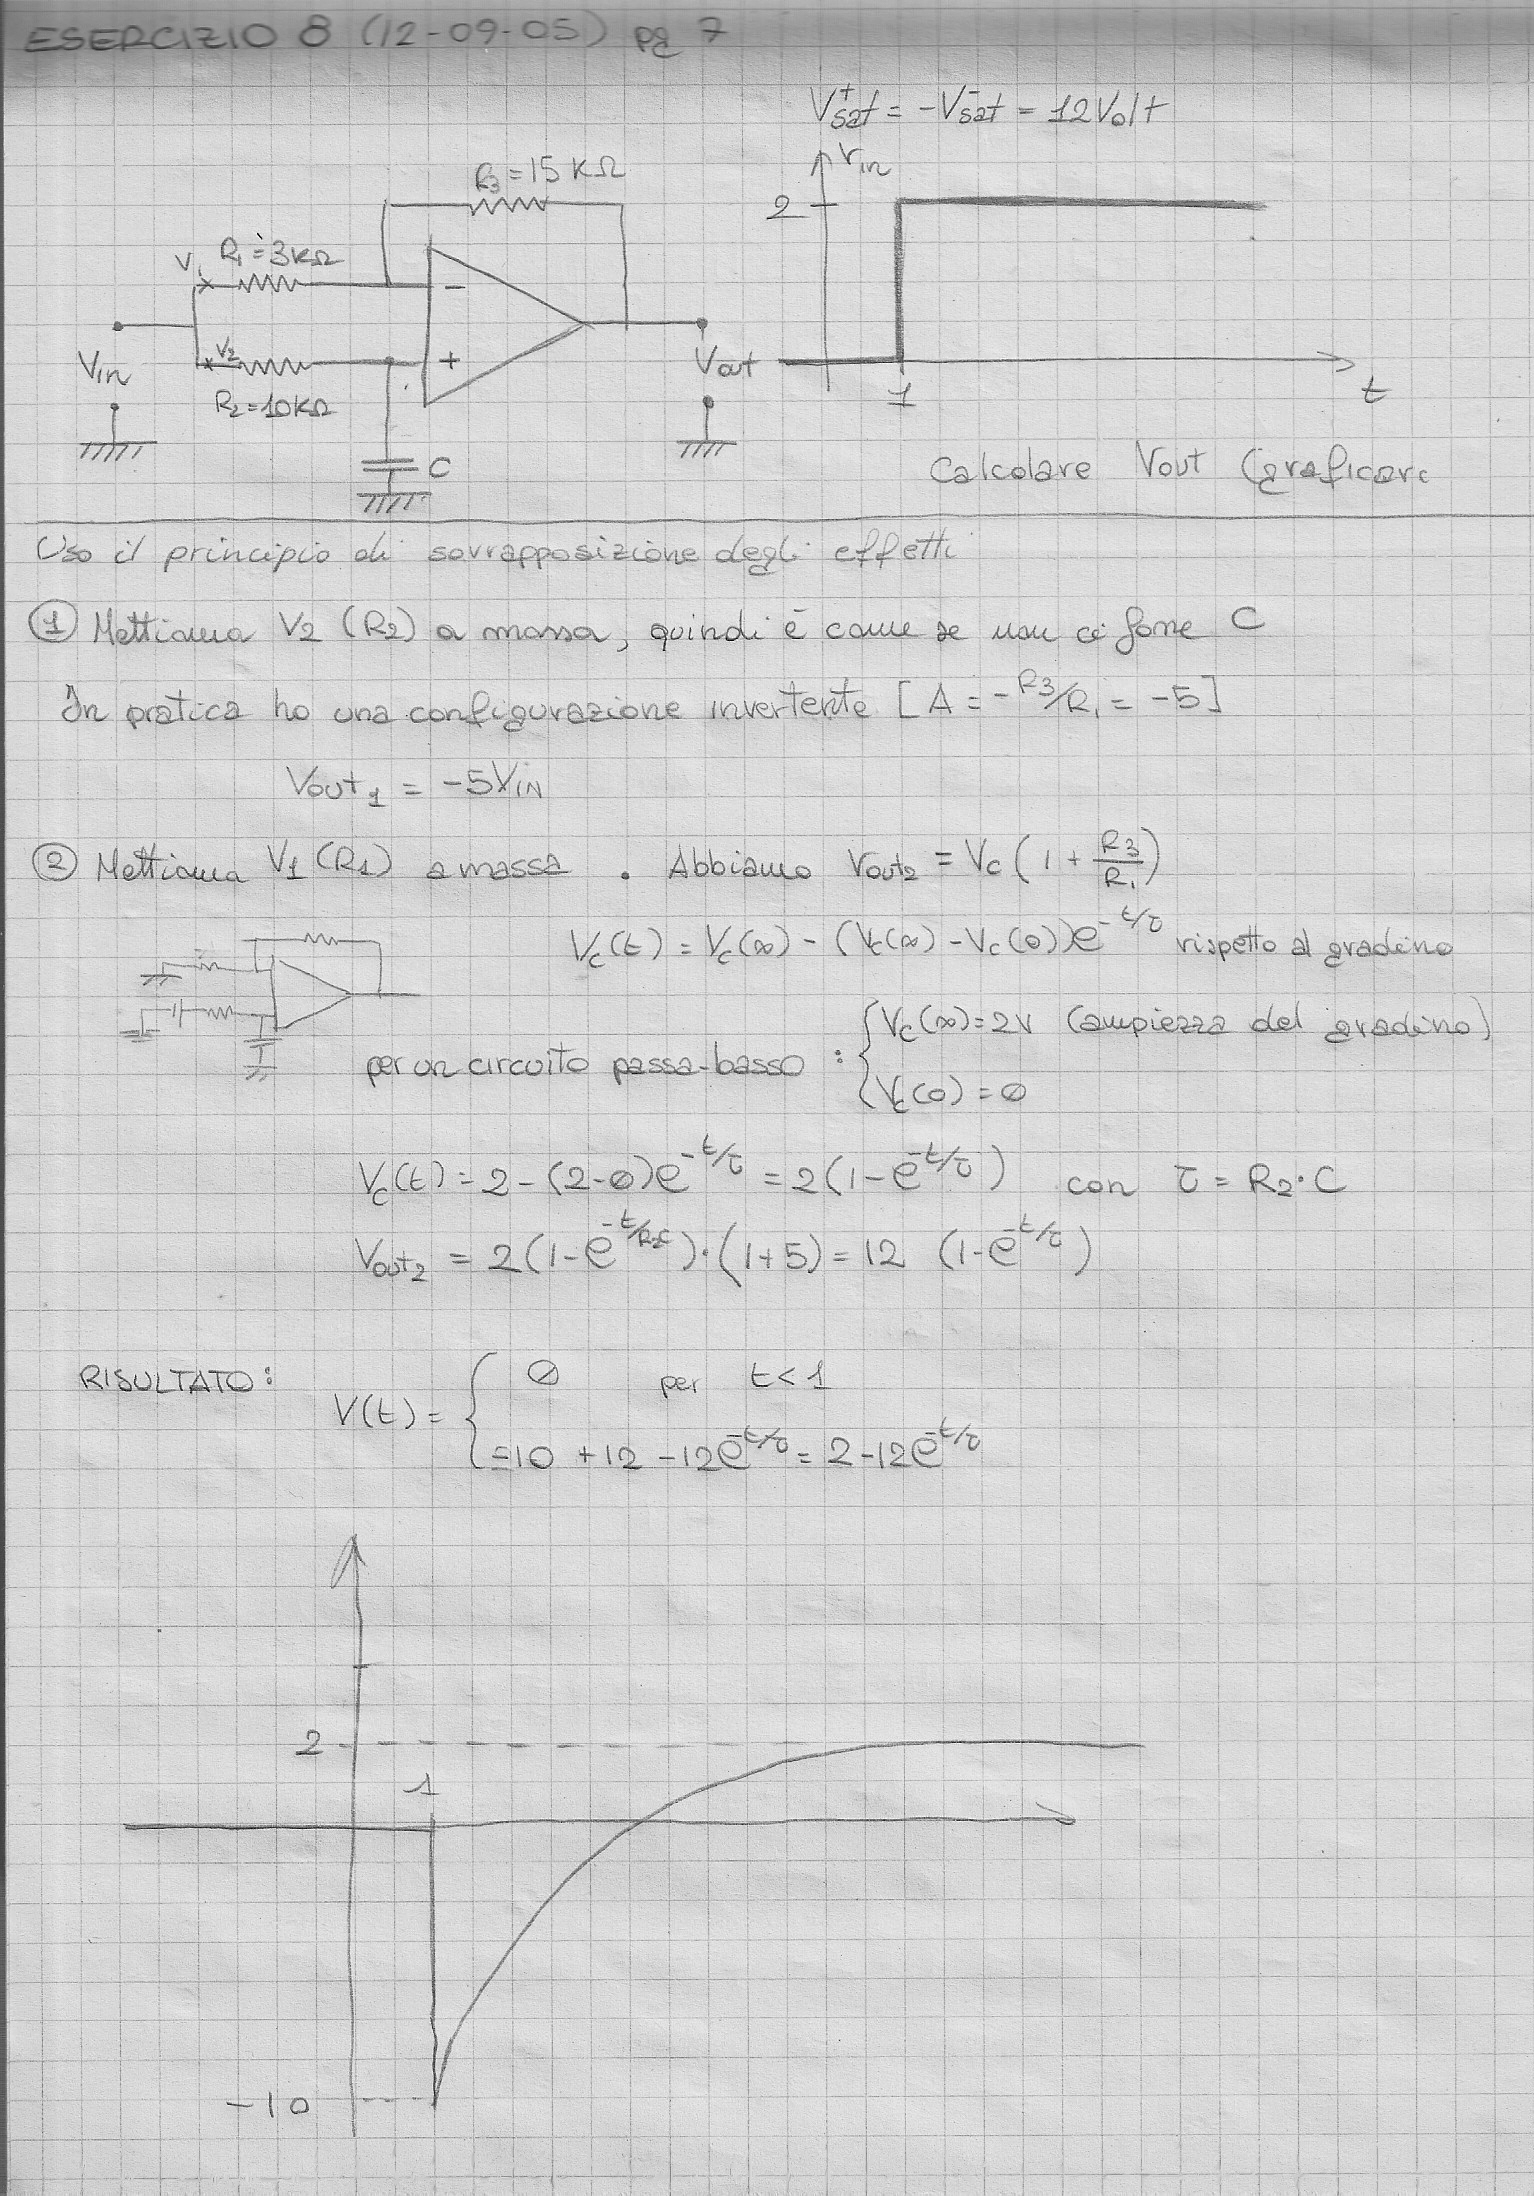 ESERCIZIO 8 (12-09-05) pg 7
V⁺sat = -V⁻sat = 12Volt
R3=15 KΩ
Vin
2
V1 R1=3KΩ
-
V2
+
Vin
Vout
1
t
R2=10KΩ
C
Calcolare Vout (graficare
Uso il principio di sovrapposizione degli effetti
① Mettiamo V2 (R2) a massa, quindi è come se non ci fosse C
In pratica ho una configurazione invertente [A = -R3/R1 = -5]
Vout1 = -5VIN
② Mettiamo V1 (R1) a massa . Abbiamo Vout2 = Vc (1 + R3/R1)
Vc(t) = Vc(∞) - (Vc(∞) - Vc(0))e^-t/τ rispetto al gradino
per un circuito passa-basso : { Vc(∞)=2V (ampiezza del gradino)
Vc(0) = ∅
Vc(t) = 2 - (2-∅)e^-t/τ = 2(1-e^-t/τ) con τ = R2·C
Vout2 = 2(1-e^-t/R2C)·(1+5) = 12 (1-e^-t/τ)
RISULTATO:
V(t) = { ∅ per t<1
=10 +12 -12e^-t/τ = 2-12e^-t/τ
2
1
-10